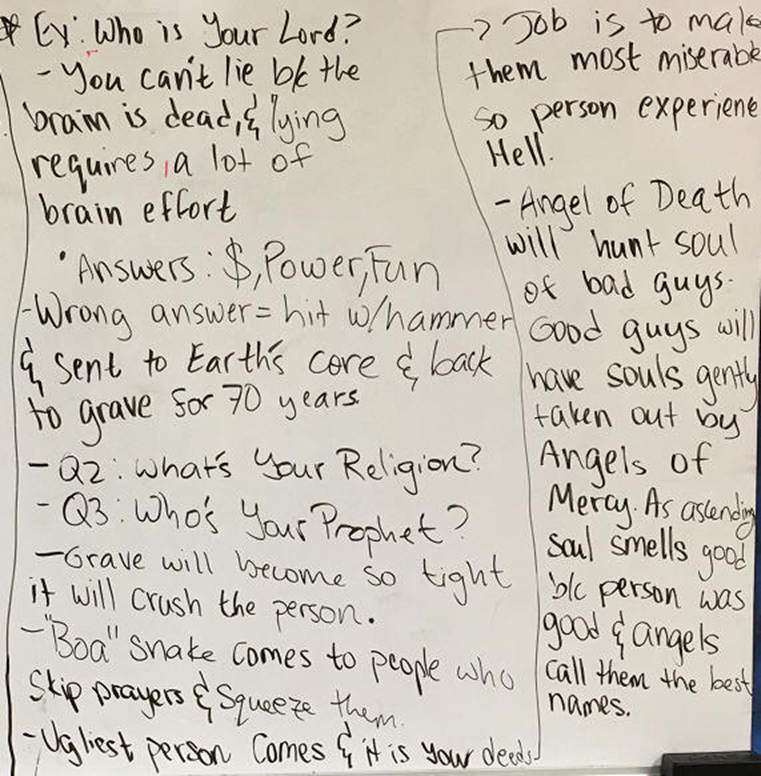 * Ex: Who is Your Lord?
- You can't lie bk the
brain is dead, & lying
requires, a lot of
brain effort
• Answers: $, Power, Fun
- Wrong answer = hit w/hammer
& Sent to Earth's core & back
to grave for 70 years.
- Q2: What's Your Religion?
- Q3: Who's Your Prophet?
- Grave will become so tight
it will crush the person.
- "Boa" snake comes to people who
Skip prayers & squeeze them.
- Ugliest person comes & it is your deeds
→ Job is to make
them most miserable
so person experiene
Hell.
- Angel of Death
will hunt soul
of bad guys.
Good guys will
have souls gently
taken out by
Angels of
Mercy. As ascending
soul smells good
b/c person was
good & angels
call them the best
names.